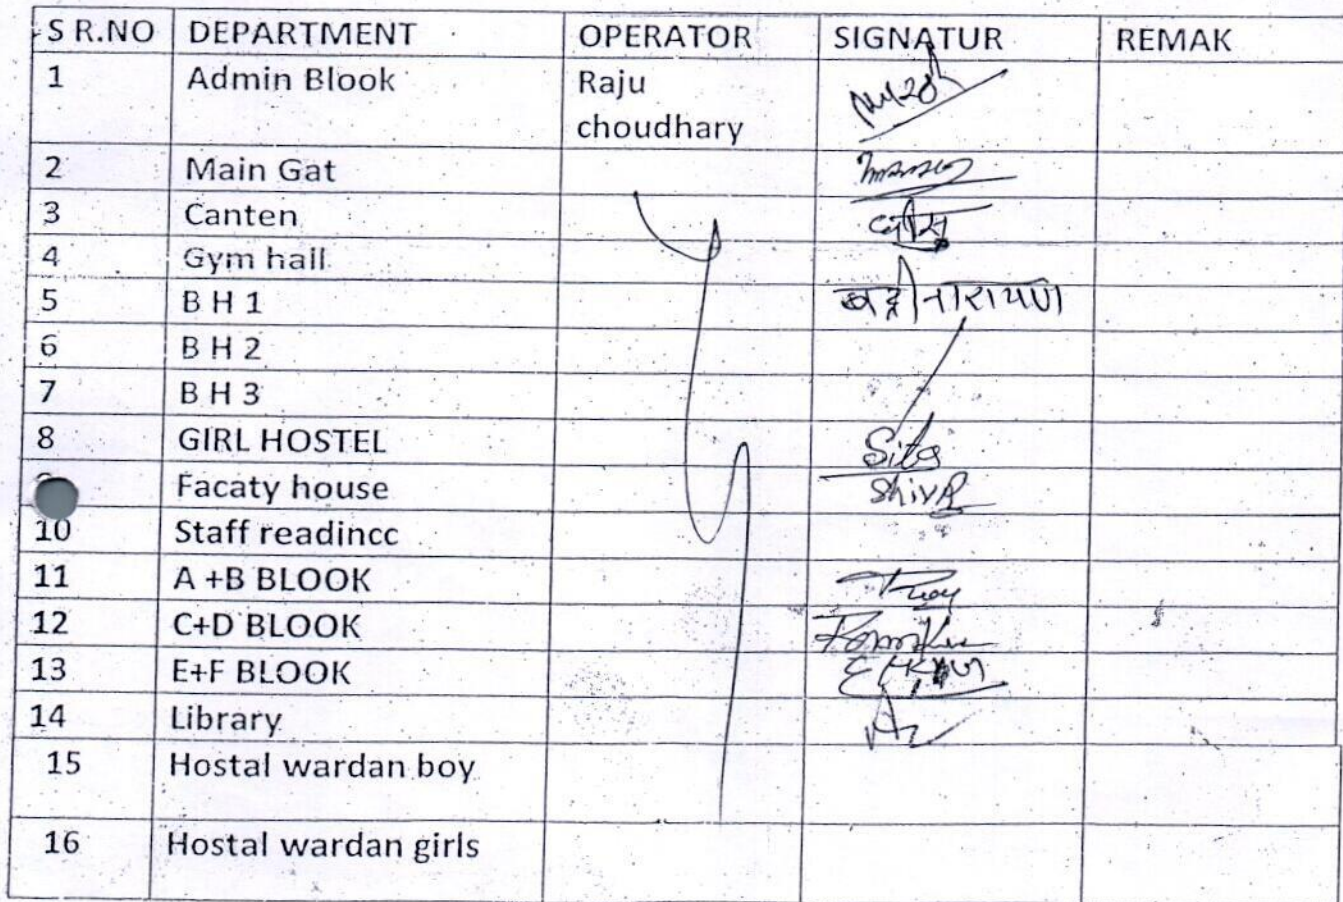 S R.NO DEPARTMENT OPERATOR SIGNATUR REMAK
1 Admin Blook Raju
choudhary
2 Main Gat
3 Canten
4 Gym hall
5 B H 1 बद्रीनारायण
6 B H 2
7 B H 3
8 GIRL HOSTEL Sita
Facaty house Shiv
10 Staff readincc
11 A +B BLOOK
12 C+D BLOOK
13 E+F BLOOK
14 Library
15 Hostal wardan boy
16 Hostal wardan girls